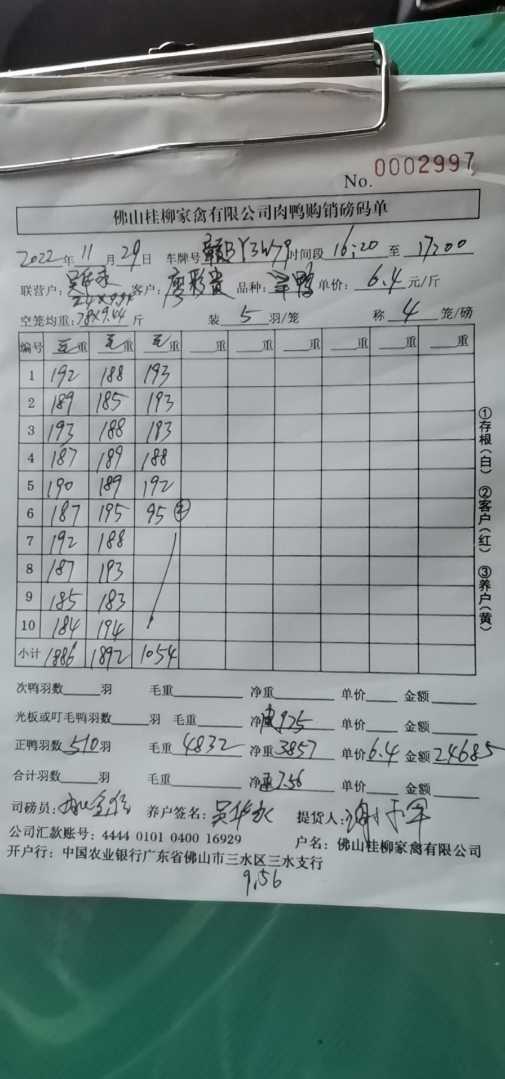 No. 0002997
佛山桂柳家禽有限公司肉鸭购销磅码单
2022年 11月 29日 车牌号 赣BY3W79 时间段 16:20 至 17:00
联营户: 客户: 廖彩贵 品种: 单价: 6.4 元/斤
空笼均重: 78×9.44 斤 装 5 羽/笼 称 4 笼/磅
编号 毛重 毛重 毛重 重 重 重 重 重 重
1 192 188 193
2 189 185 193
3 193 188 183
4 187 189 188
5 190 189 192
6 187 195 95
7 192 188
8 187 193
9 185 183
10 184 194
小计 1886 1892 1054
①存根(白) ②客户(红) ③养户(黄)
次鸭羽数 羽 毛重 净重 单价 金额
光板或叮毛鸭羽数 羽 毛重 净重 975 单价 金额
正鸭羽数 510 羽 毛重 4832 净重 3857 单价 6.4 金额 24685
合计羽数 羽 毛重 净重 7.56 单价 金额
司磅员: 养户签名: 吴华永 提货人:
公司汇款账号: 4444 0101 0400 16929 户名: 佛山桂柳家禽有限公司
开户行: 中国农业银行广东省佛山市三水区三水支行
9.56